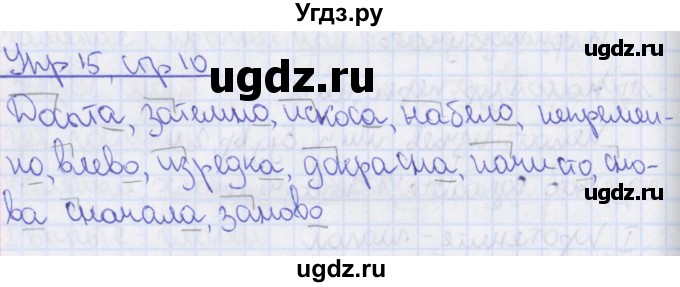 Угдз.ру
Упр 15, стр 10
ugdz.ru
Досыта, затемно, искоса, набело, непремен-
но, влево, изредка, докрасна, начисто, сно-
ва сначала, заново
ugdz.ru
ugdz.ru